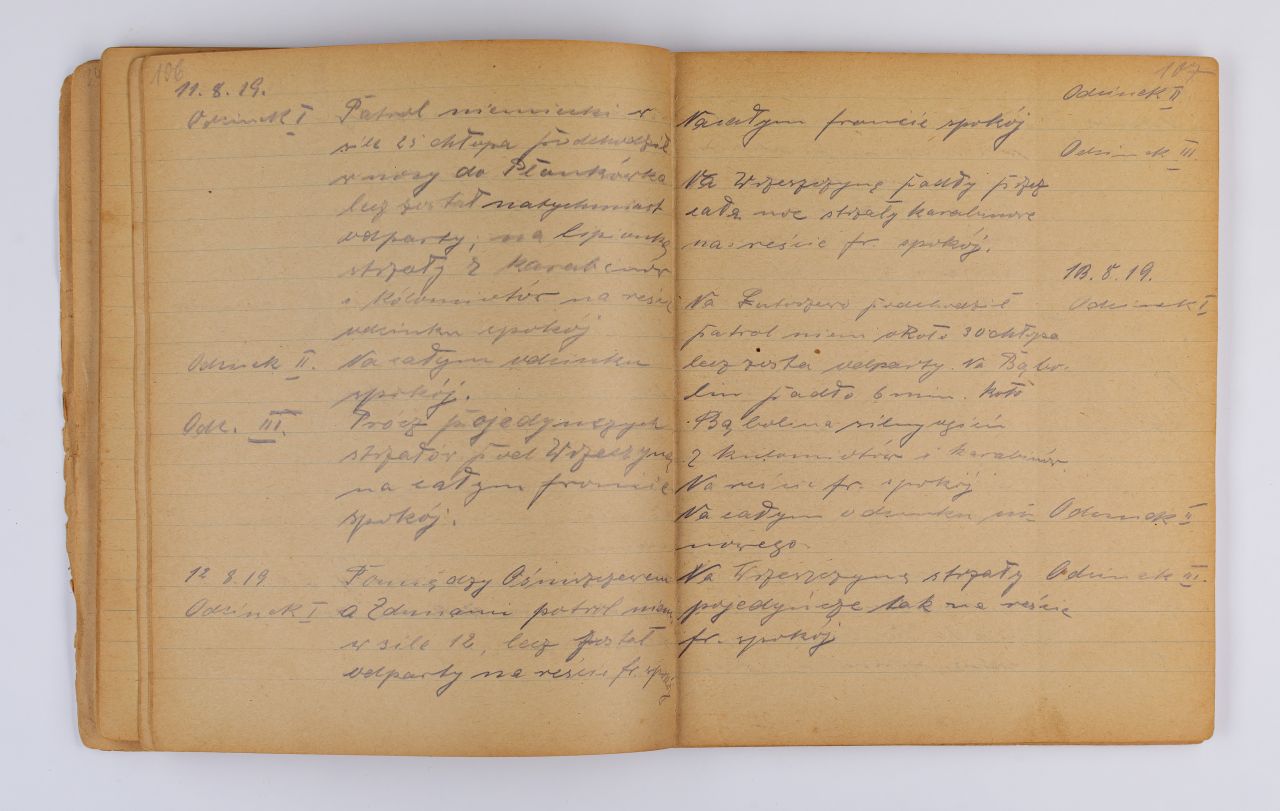 106
11. 8. 19.
Odcinek I Patrol niemiecki w
sile 25 chłopa podchodził
w nocy do Płonkówka
lecz został natychmiast
odparty, na
strzały z karabinów
i kólomiotów na reście
odcinku spokój
Odcinek II. Na całym odcinku
spokój.
Odc. III. Prócz pojedynczych
strzałów pod Wrzeszczyną
na całym froncie
spokój.
12 8. 19 Pomiędzy Ośniszczewem
Odcinek I a Zdunami patrol niem.
w sile 12, lecz został
odparty na reście fr. spokój
107
Odcinek II
Na całym froncie spokój
Odcinek III
Na Wrzeszczynę padły przez
całą noc strzały karabinowe
na reście fr. spokój.
13. 8. 19.
Na podchodził Odcinek I
patrol niem około 30 chłopa
lecz zostal odparty. Na Bąbo-
lin padło 6 min. Koło
Bąbolina silny ogień
z kulomiotów i karabinów
Na reście fr. spokój
Na całym odcinku nic Odcinek II
nowego
Na Wrzeszczynę strzały Odcinek III.
pojedyńcze tak na reście
fr. spokój